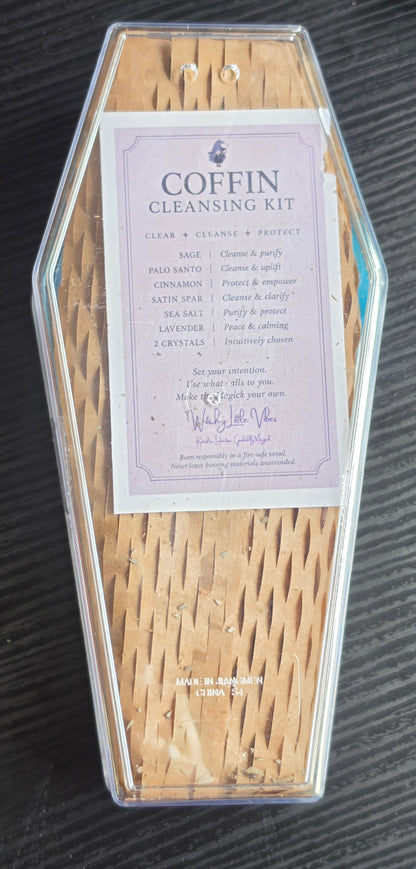 COFFIN
CLEANSING KIT
CLEAR + CLEANSE + PROTECT
SAGE | Cleanse & purify
PALO SANTO | Cleanse & uplift
CINNAMON | Protect & empower
SATIN SPAR | Cleanse & clarify
SEA SALT | Purify & protect
LAVENDER | Peace & calming
2 CRYSTALS | Intuitively chosen
Set your intention.
Use what calls to you.
Make the Magick your own.
Witchy Little Vibes
Burn responsibly in a fire-safe vessel.
Never leave burning materials unattended.
MADE IN JIANGMEN
CHINA S4